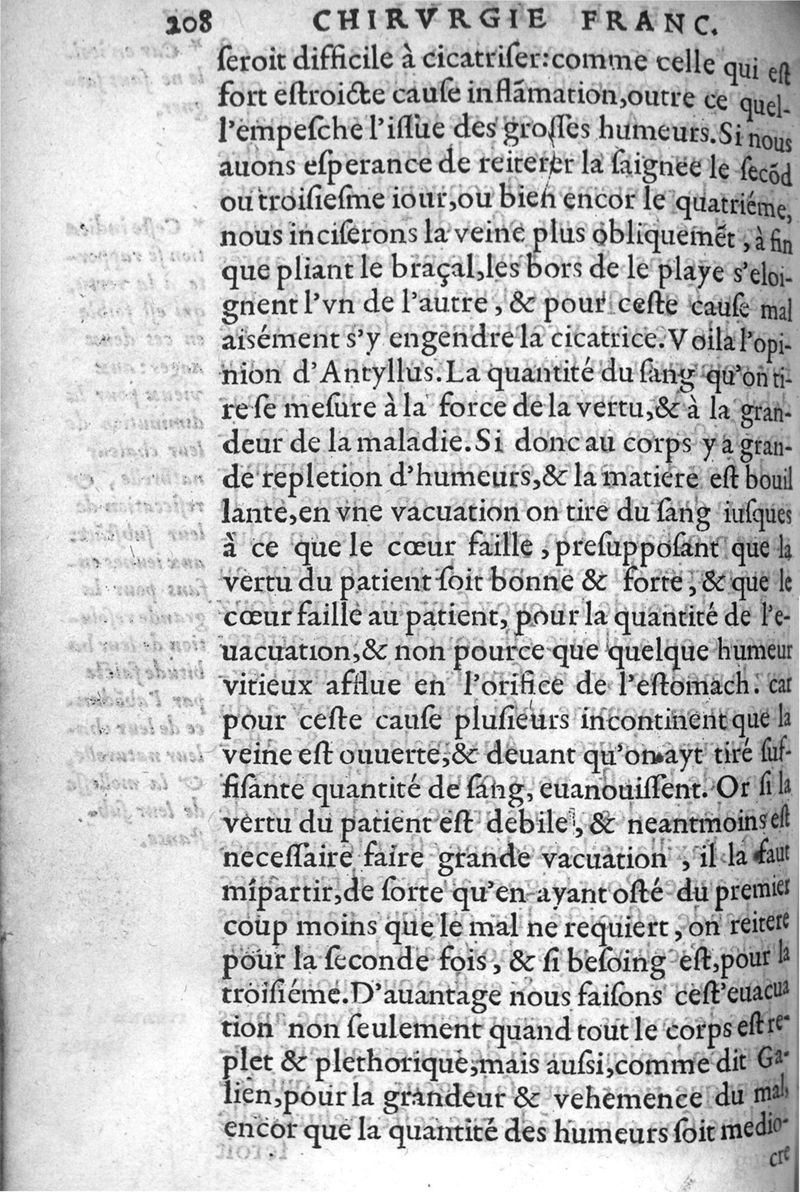 208 CHIRVRGIE FRANC.
ſeroit difficile à cicatriſer:comme celle qui eſt
fort eſtroicte cauſe inflãmation,outre ce quel-
l'empeſche l'iſſue des groſſes humeurs.Si nous
auons eſperance de reiterer la ſaignee le ſecõd
ou troiſieſme iour,ou bien encor le quatriéme,
nous inciſerons la veine plus obliquemẽt, à fin
que pliant le braçal,les bors de le playe s'eloi-
gnent l'vn de l'autre, & pour ceſte cauſe mal
aisément s'y engendre la cicatrice.Voila l'opi-
nion d'Antyllus.La quantité du ſang qu'on ti-
re ſe meſure à la force de la vertu,& à la gran-
deur de la maladie.Si donc au corps y a gran-
de repletion d'humeurs,& la matiere eſt bouil
lante,en vne vacuation on tire du ſang iuſques
à ce que le cœur faille, preſuppoſant que la
vertu du patient ſoit bonne & forte, & que le
cœur faille au patient, pour la quantité de l'e-
uacuation,& non pource que quelque humeur
vitieux afflue en l'orifice de l'eſtomach. car
pour ceſte cauſe pluſieurs incontinent que la
veine eſt ouuerte,& deuant qu'on ayt tiré ſuf-
fiſante quantité de ſang, euanouiſſent. Or ſi la
vertu du patient eſt debile, & neantmoins eſt
neceſſaire faire grande vacuation, il la faut
mipartir,de ſorte qu'en ayant oſté du premier
coup moins que le mal ne requiert, on reitere
pour la ſeconde fois, & ſi beſoing eſt,pour la
troiſiéme.D'auantage nous faiſons ceſt'euacua
tion non ſeulement quand tout le corps eſt re-
plet & plethorique,mais auſsi,comme dit Ga-
lien,pour la grandeur & vehemence du mal,
encor que la quantité des humeurs ſoit medio-
cre